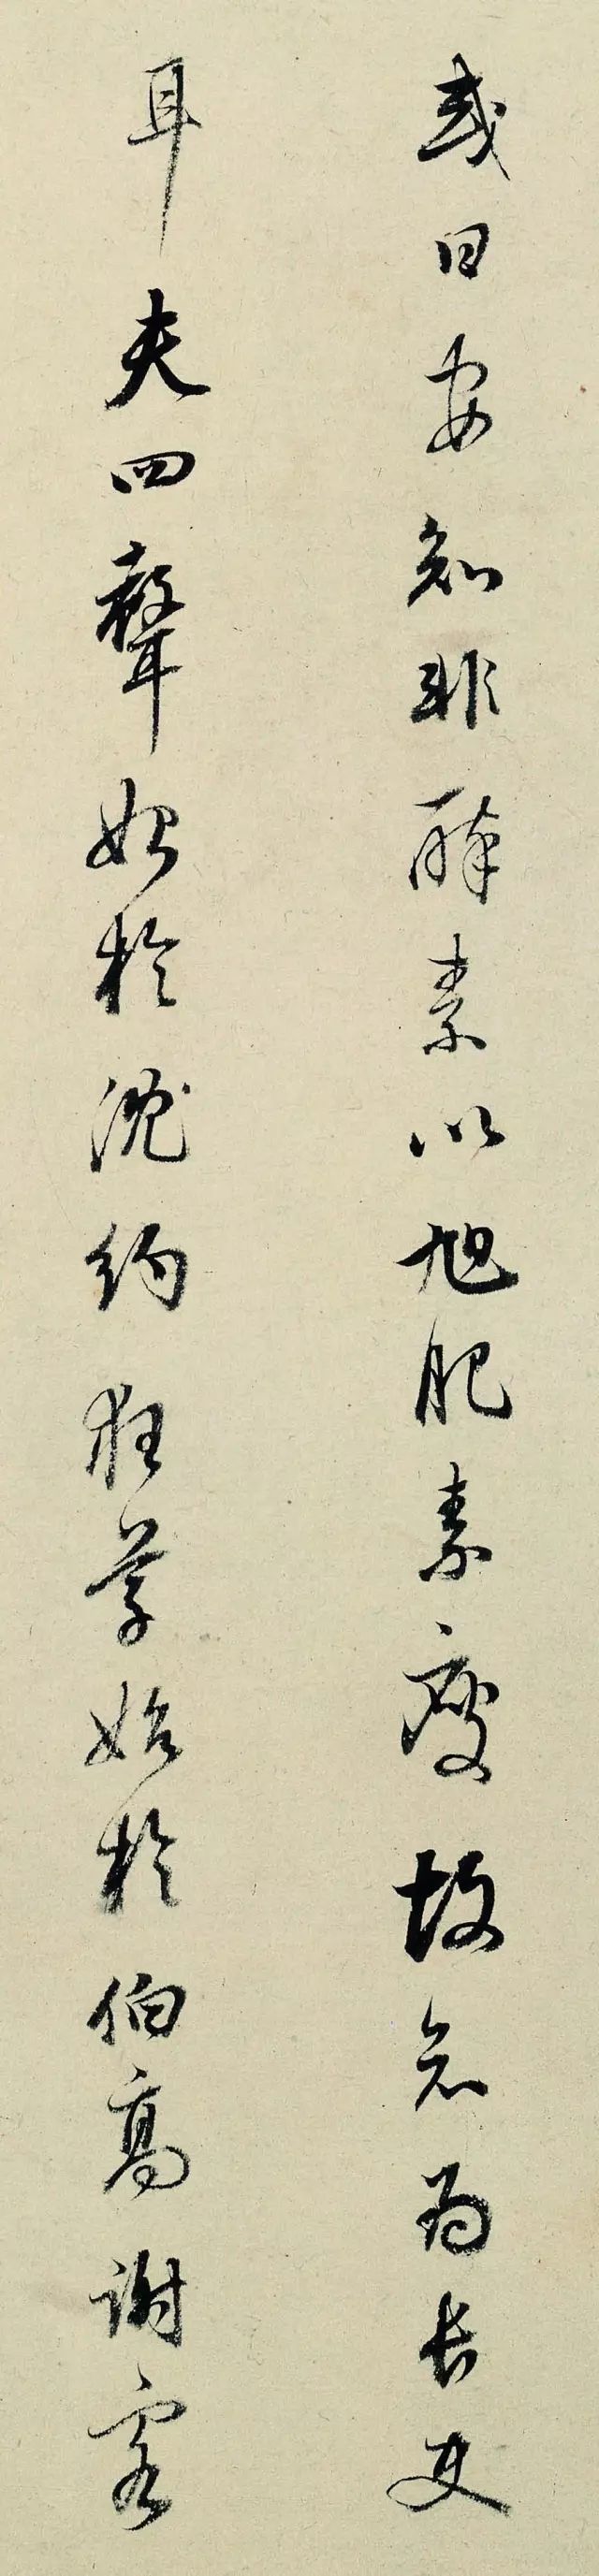 或曰安知非醉素以旭肥素瘦故知為長史
耳夫四聲始於沈約狂草始於伯高謝客